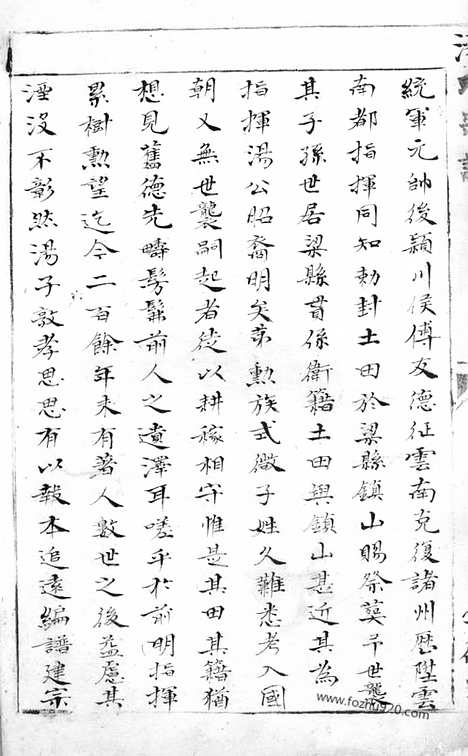 統軍元帥後潁川侯傅友德征雲南克復諸州歷陞雲
南都指揮同知勅封土田於梁縣鎮山賜祭奠予世襲
其子孫世居梁縣貫係衛籍土田與鎮山甚近其為
指揮湯公昭裔明矣第勳族式微子姓久難悉考入國
朝又無世襲嗣起者徒以耕稼相守惟是其田其籍猶
想見舊德先疇髣髴前人之遺澤耳嗟乎於前明指揮
累樹勳望迄今二百餘年未有著人數世之後益慮其
湮沒不彰然湯子敦孝思思有以報本追遠編譜建宗
www.fozhu920.com